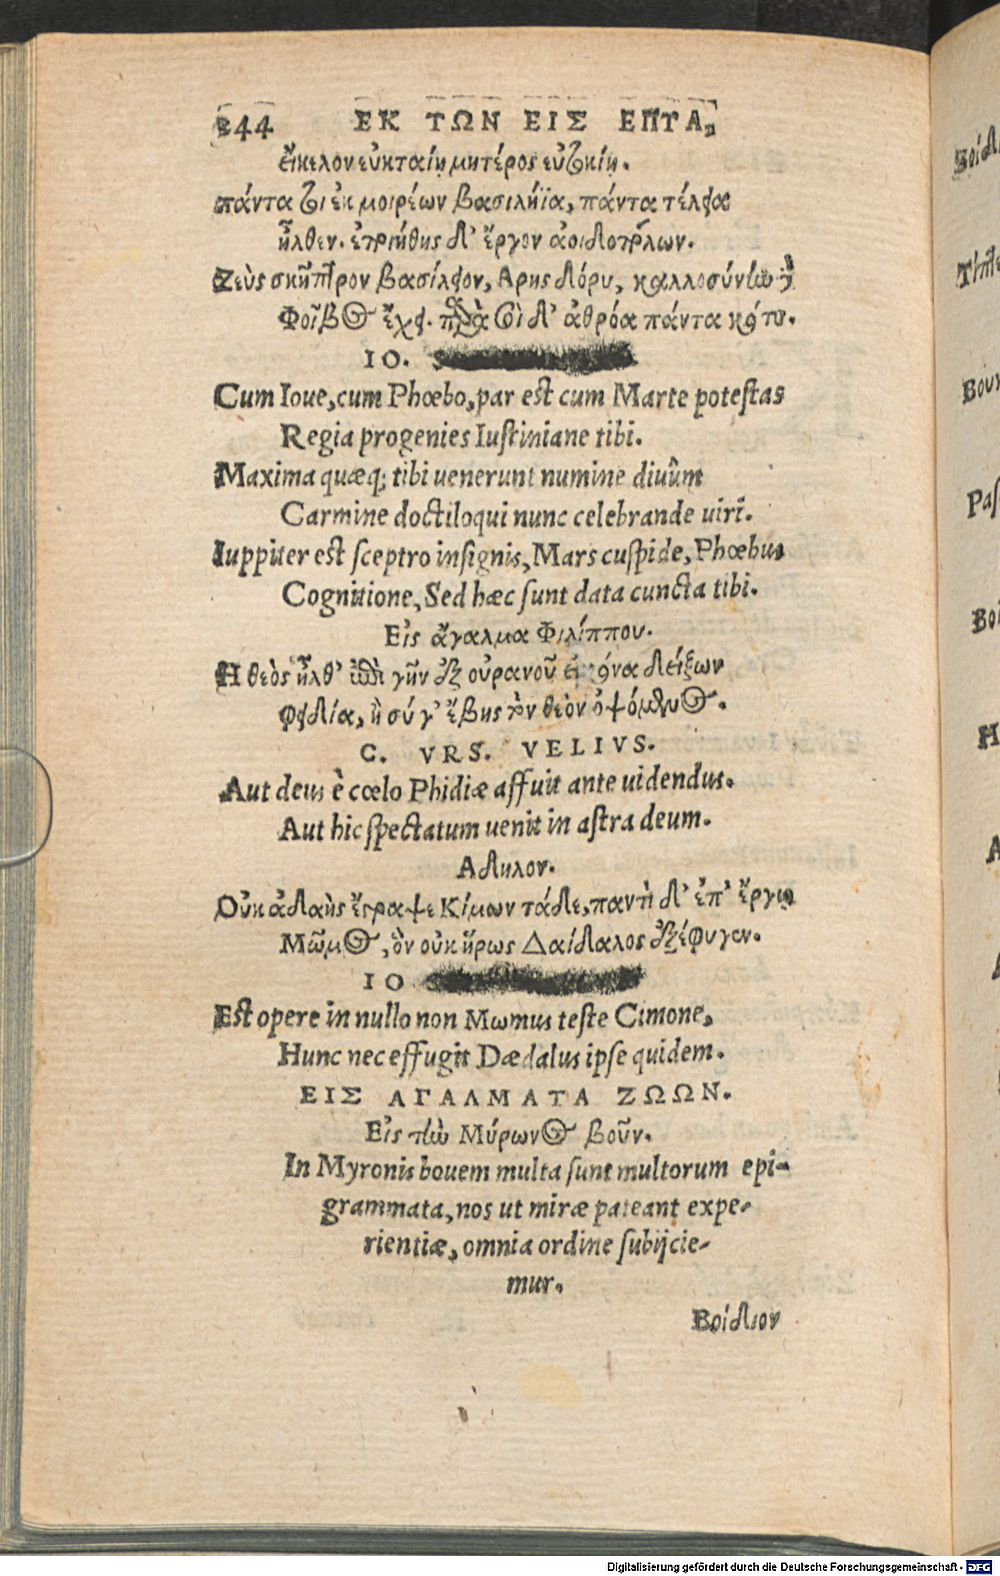 244 ΕΚ ΤΩΝ ΕΙΣ ΕΠΤΑ,
εἴκελον εὐκταίῃ μητέρος εὐτυκίῃ.
πάντα σοι ἐκ μοιρέων βασιλήϊα, πάντα τέλεια
ἦλθεν. ἐτριήθης δ' ἔργον ἀοιδοπόλων.
Ζεὺς σκῆπτρον βασίλειον, Αρης δόρυ, καλλοσύνην δὲ
Φοῖβος ἔχει. παρὰ σοὶ δ' ἀθρόα πάντα
IO.
Cum Ioue, cum Phœbo, par est cum Marte potestas
Regia progenies Iustiniane tibi.
Maxima quæq; tibi uenerunt numine diuûm
Carmine doctiloqui nunc celebrande uiri.
Iuppiter est sceptro insignis, Mars cuspide, Phœbus
Cognitione, Sed hæc sunt data cuncta tibi.
Εἰς ἄγαλμα Φιλίππου.
Η θεὸς ἦλθ' ἐπὶ γῆν ἐξ οὐρανοῦ εἰκόνα δείξων
Φειδία, ἢ σύ γ' ἔβης τὸν θεὸν ὀψόμενος.
C. VRS. VELIVS.
Aut deus è cœlo Phidiæ affuit ante uidendus.
Aut hic spectatum uenit in astra deum.
Αδηλον.
Οὐκ ἀδαὴς ἔγραψε Κίμων τάδε, παντὶ δ' ἐπ' ἔργῳ
Μῶμος, ὃν οὐκ ἥρως Δαίδαλος ἐξέφυγεν.
IO
Est opere in nullo non Mωmus teste Cimone,
Hunc nec effugit Dædalus ipse quidem.
ΕΙΣ ΑΓΑΛΜΑΤΑ ΖΩΩΝ.
Εἰς τὴν Μύρωνος βοῦν.
In Myronis bouem multa sunt multorum epi-
grammata, nos ut miræ pateant expe-
rientiæ, omnia ordine subijcie-
mur.
Βοίδιον
Digitalisierung gefördert durch die Deutsche Forschungsgemeinschaft - DFG